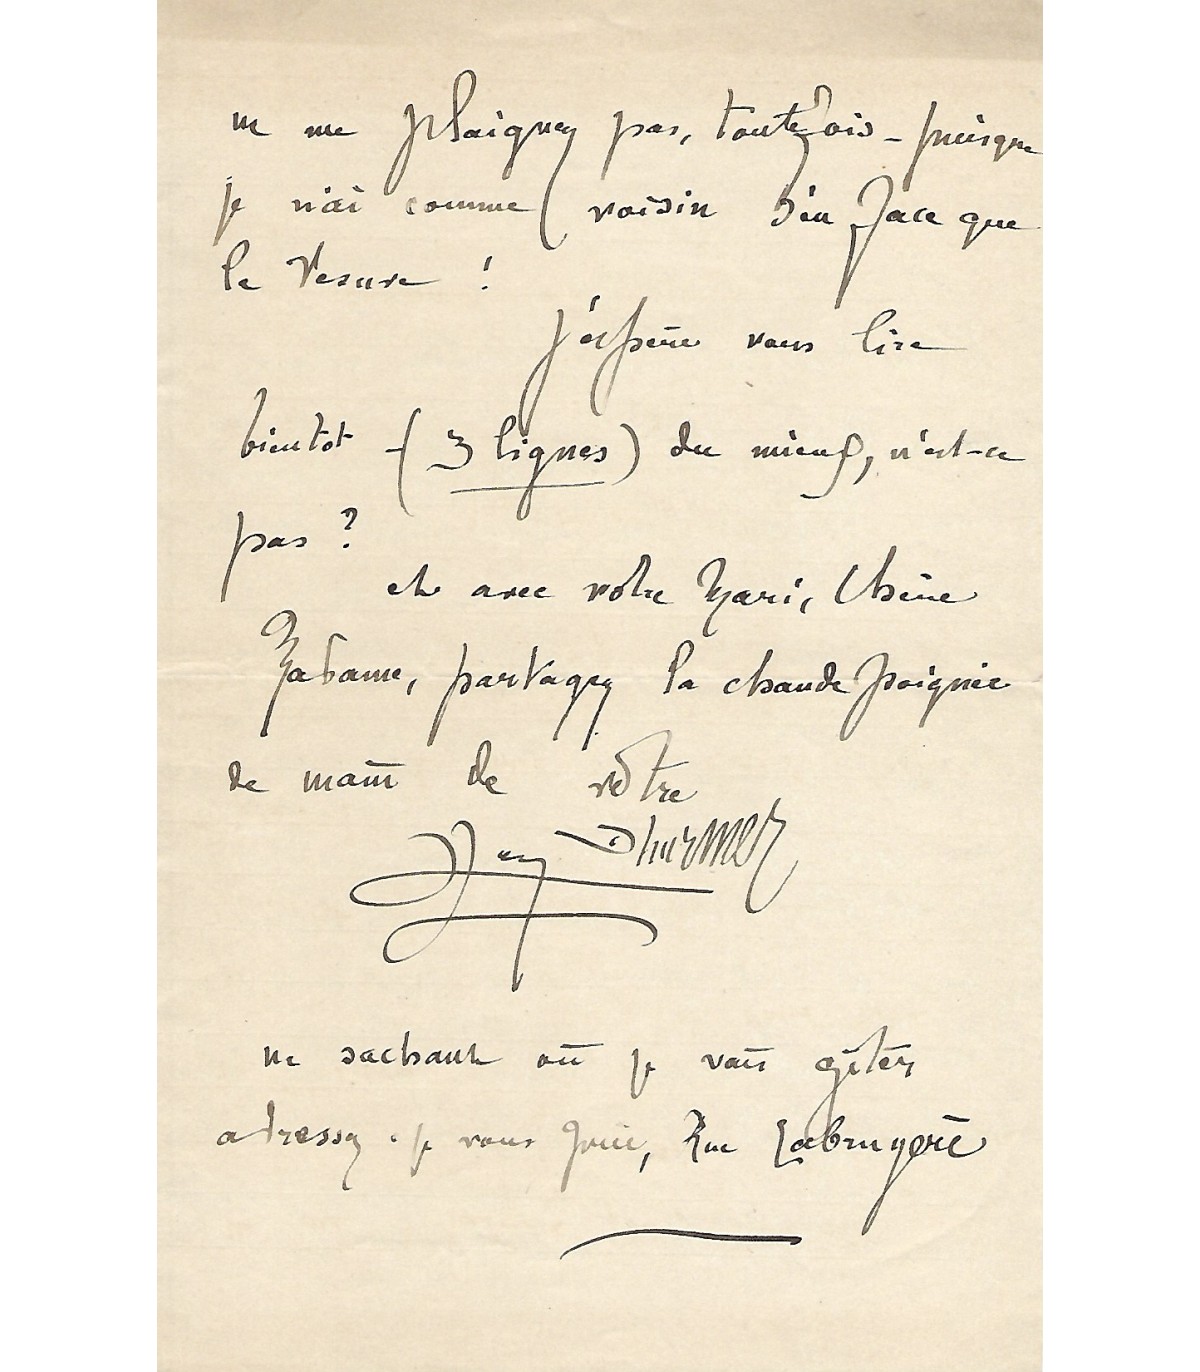 ne me plaignez pas, toutefois - puisque
je n'ai comme voisin d'en face que
le Vesuve !
j'espère vous lire
bientot - (3 lignes) du mieux, n'est-ce
pas ?
et avec votre Mari, Chère
Madame, partagez la chaude poignée
de main de votre
Levy Dhurmer
ne sachant où je vais gîter
adressez - je vous prie, Rue Labruyère